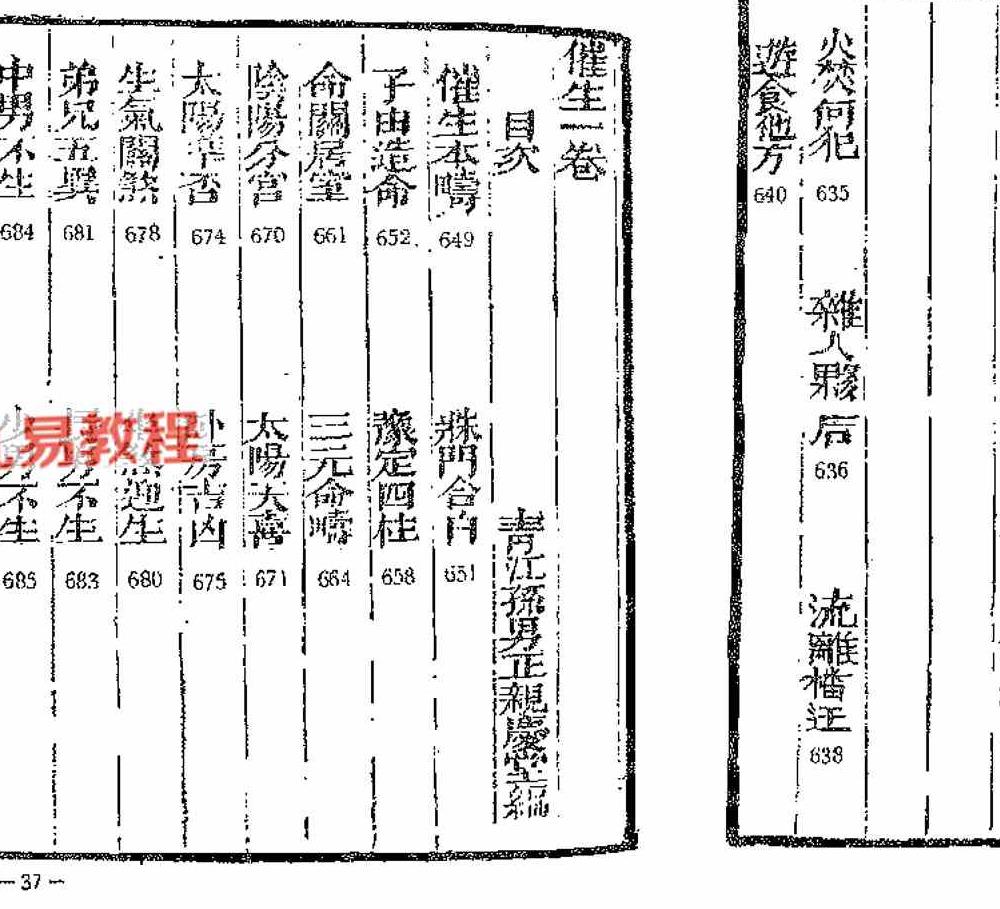 火焚何犯 635
雜人夥后 636
流離 638
遊食他方 640
催生一卷
目次
青江孫男正親 編
催生本疇 649
門合白 651
子由造命 652
豫定四柱 658
命關居室 661
三元命疇 664
陰陽分宮 670
太陽大喜 671
太陽 否 674
房吉凶 675
生氣關煞 678
迎生 680
弟兄五異 681
男不生 683
中男不生 684
少男不生 685
易教程
— 37 —